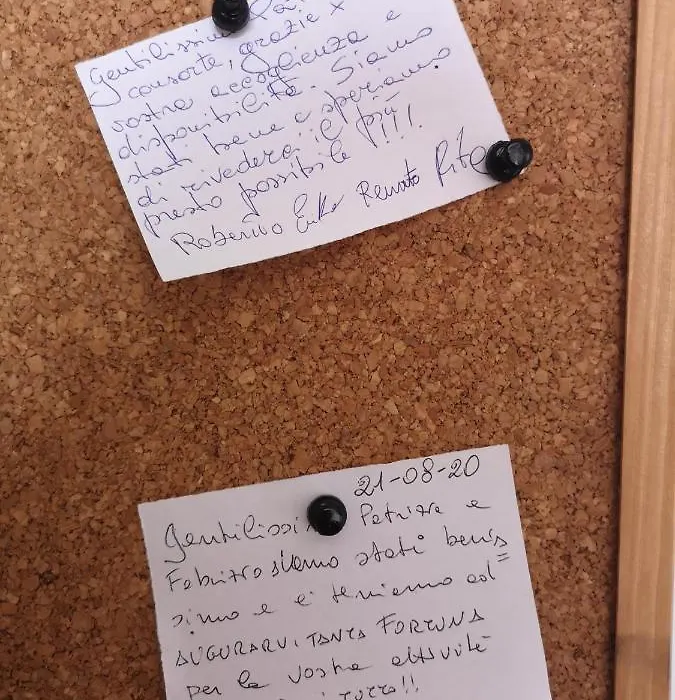 Gentilissimi
consorte, grazie x
vostra accoglienza e
disponibilità. Siamo
stati bene e speriamo
di rivederci il più
presto possibile !!!
Roberto Erika Renato Rita
21-08-20
Gentilissi Patrizia e
Fabrizio siamo stati benis
simo e ci teniamo ad=
AUGURARVI TANTA FORTUNA
per la vostra attività
tutto!!